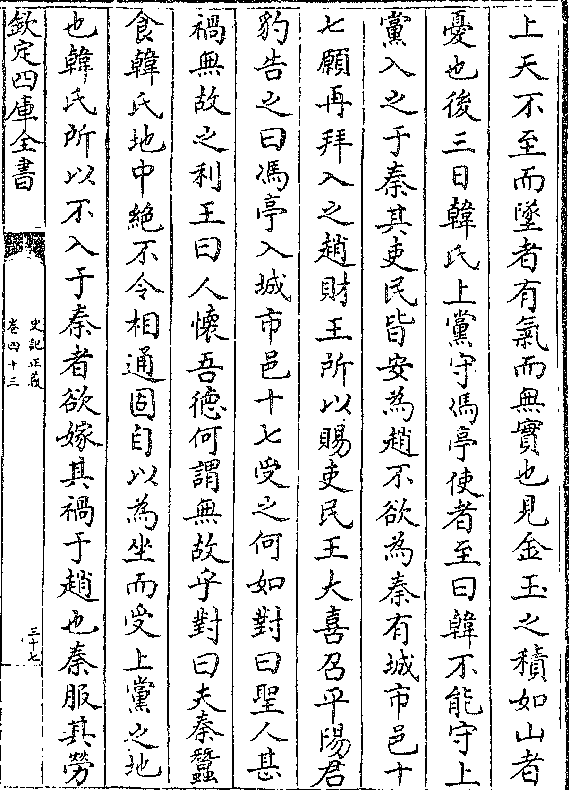 上天不至而墜者有氣而無實也見金玉之積如山者
憂也後三日韓氏上黨守馮亭使者至曰韓不能守上
黨入之于秦其吏民皆安為趙不欲為秦有城市邑十
七願再拜入之趙財王所以賜吏民王大喜召平陽君
豹告之曰馮亭入城市邑十七受之何如對曰聖人甚
禍無故之利王曰人懷吾徳何謂無故乎對曰夫秦蠶
食韓氏地中絶不令相通固自以為坐而受上黨之地
也韓氏所以不入于秦者欲嫁其禍于趙也秦服其勞
欽定四庫全書
史記正義
卷四十三
三十七